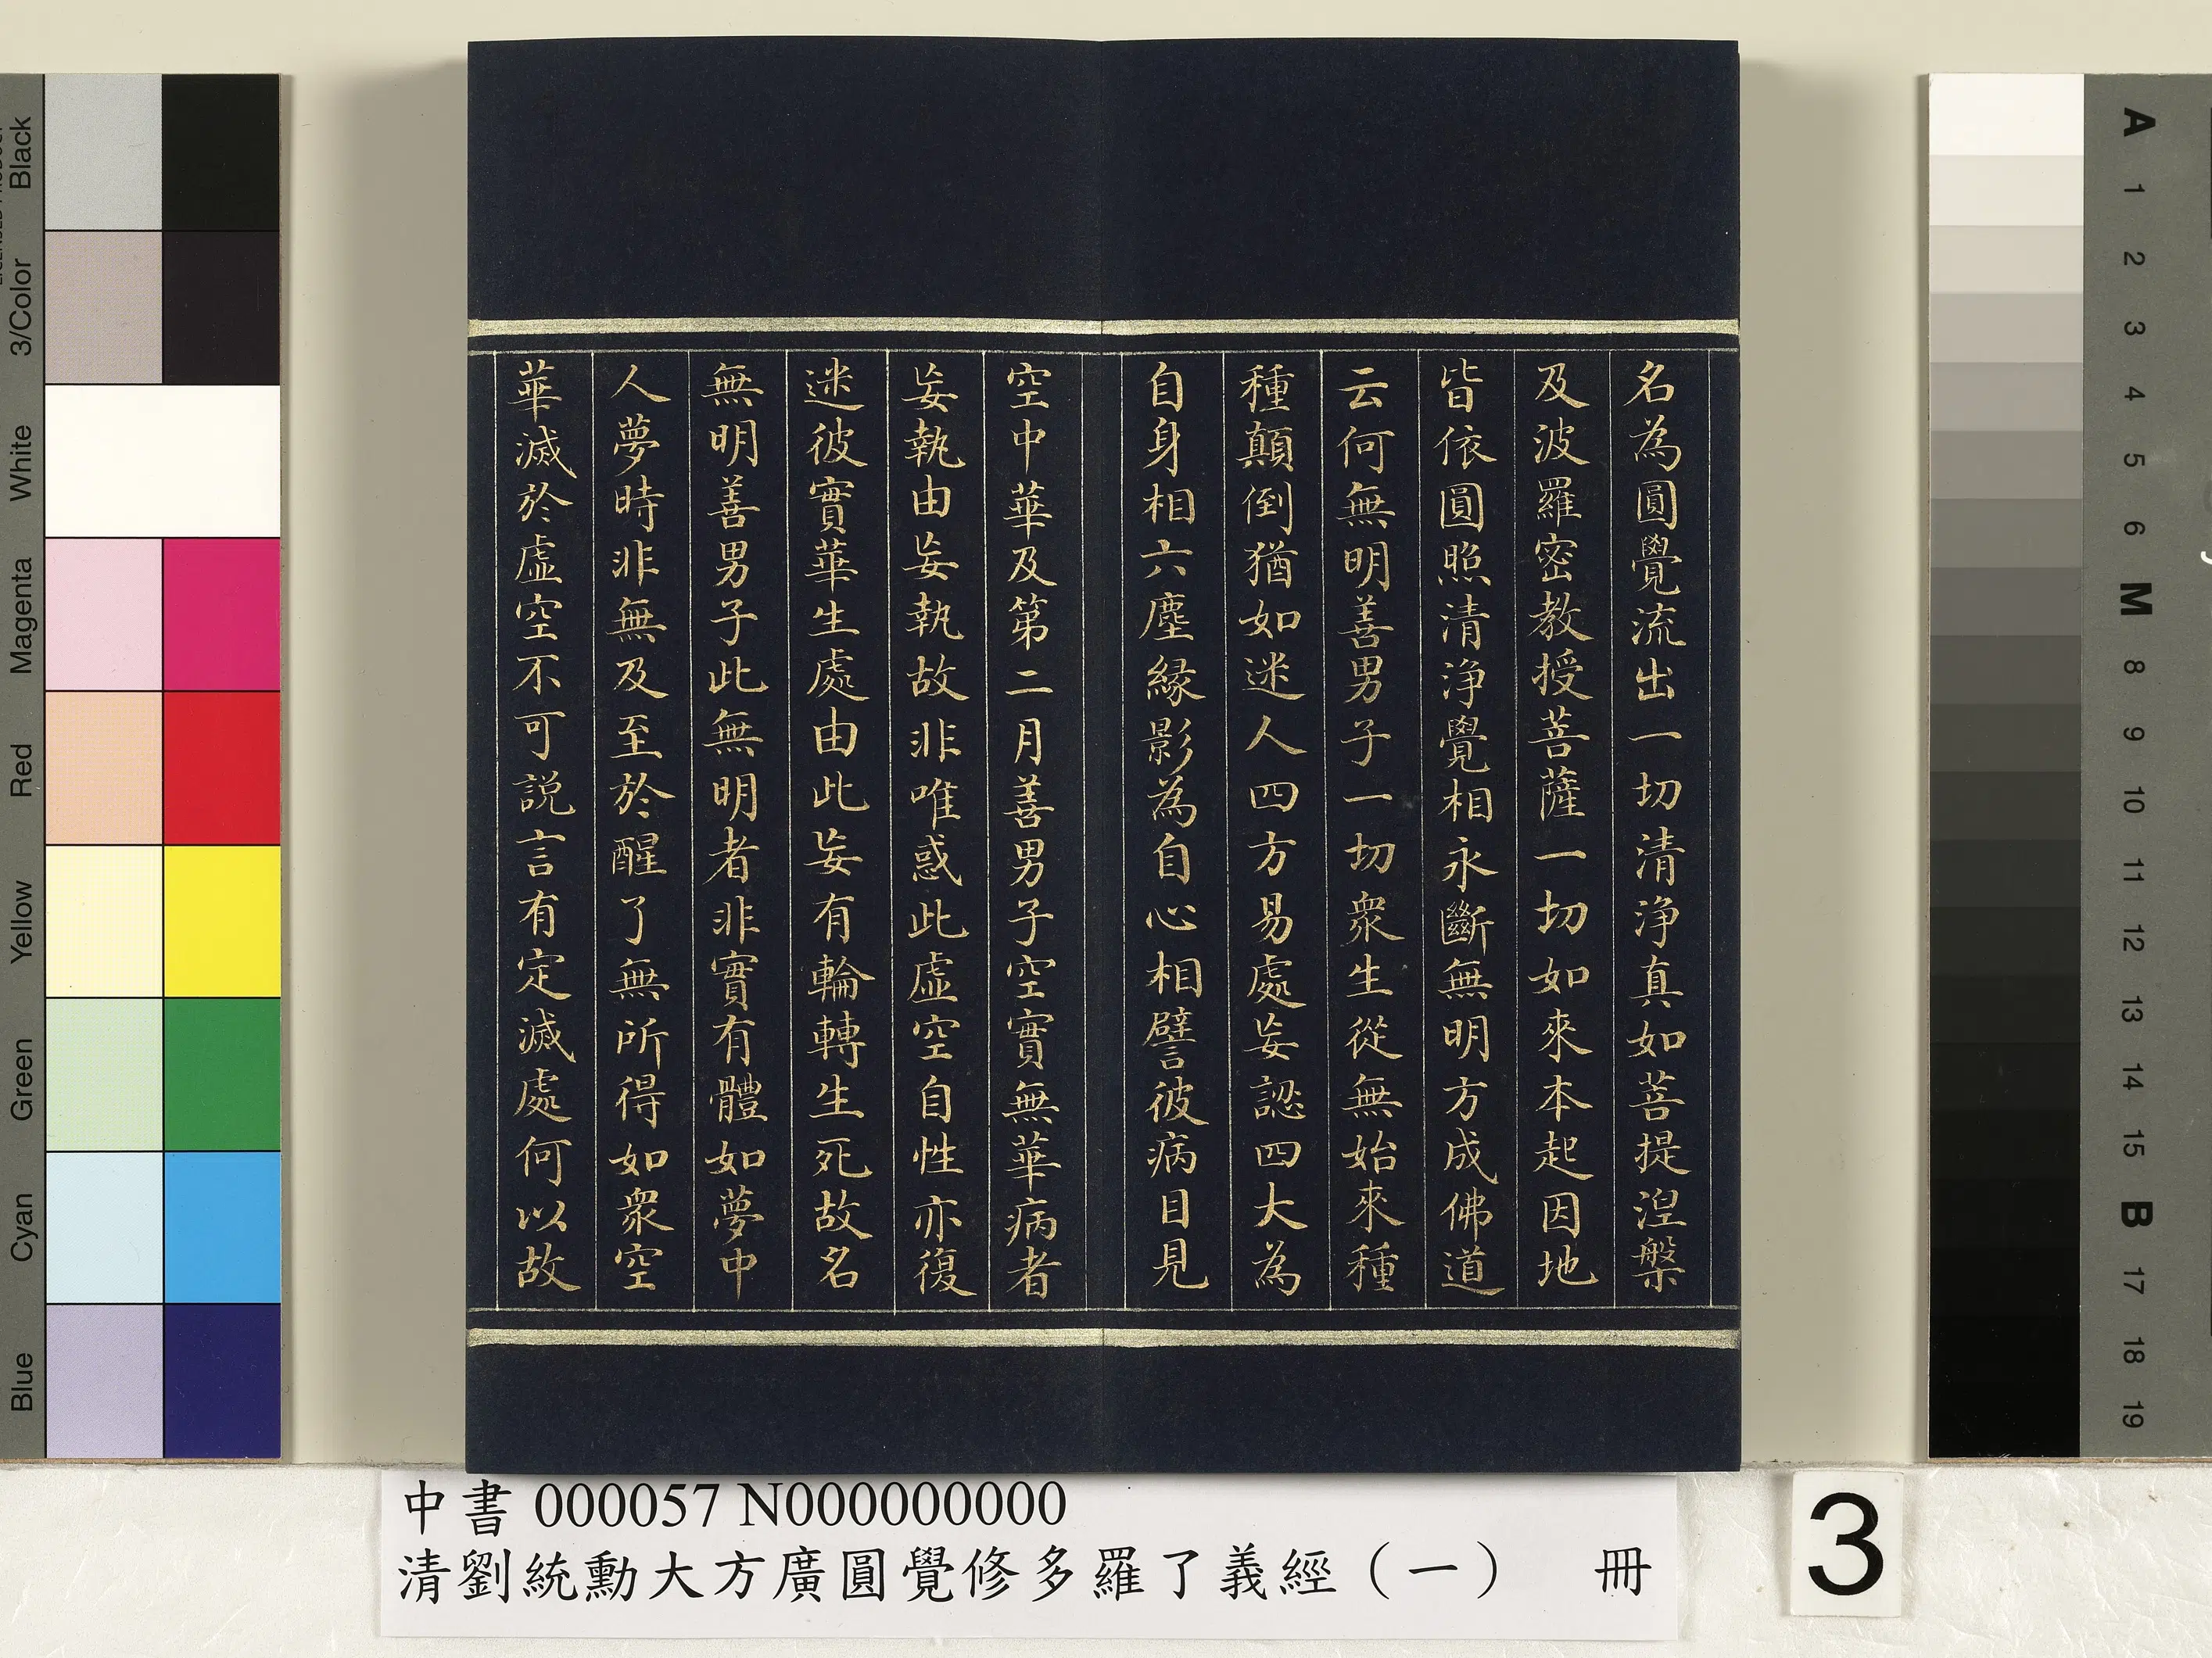 名為圓覺流出一切清淨真如菩提涅槃
及波羅密教授菩薩一切如來本起因地
皆依圓照清淨覺相永斷無明方成佛道
云何無明善男子一切衆生從無始來種
種顛倒猶如迷人四方易處妄認四大為
自身相六塵緣影為自心相譬彼病目見
空中華及第二月善男子空實無華病者
妄執由妄執故非唯惑此虛空自性亦復
迷彼實華生處由此妄有輪轉生死故名
無明善男子此無明者非實有體如夢中
人夢時非無及至於醒了無所得如衆空
華滅於虛空不可説言有定滅處何以故
中書 000057 N000000000
清劉統勳大方廣圓覺修多羅了義經（一） 冊
3
Black
3/Color
White
Magenta
Red
Yellow
Green
Cyan
Blue
A
1
2
3
4
5
6
M
8
9
10
11
12
13
14
15
B
17
18
19